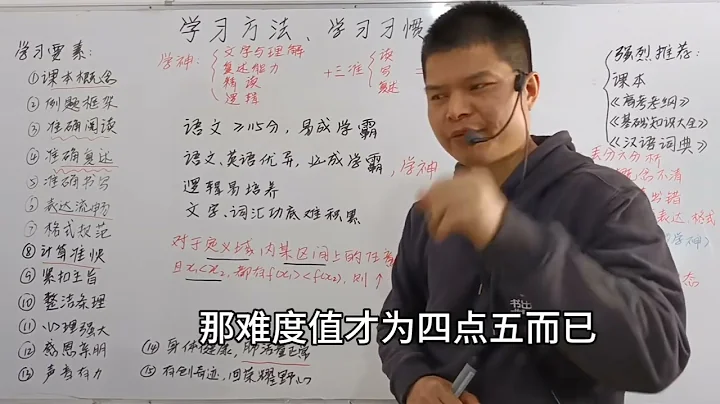 学习方法、学习习惯
学习要素:
①课本概念
②例题框架
③准确阅读
④准确复述
⑤准确书写
⑥表达流畅
⑦格式规范
⑧计算准快
⑨紧扣主旨
⑩整洁条理
⑪心理强大
⑫感恩英明
⑬声音有力
⑭身体健康,
⑮有创奇迹,
学神:
文字与理解
复述能力
精读
逻辑
+三准
读
写
复述
=
语文≥115分,易成学霸
语文、英语优异,必成学霸,学神
逻辑易培养
文字、词汇功底难积累
对于定义域内某区间上的任意
且x₁<x₂,都有f(x₁)<f(x₂),则↑
强烈推荐:
课本
《高考考纲》
《基础知识大全》
《汉语词典》
丢分大分析
出错
表达 格式
那难度值才为四点五而已